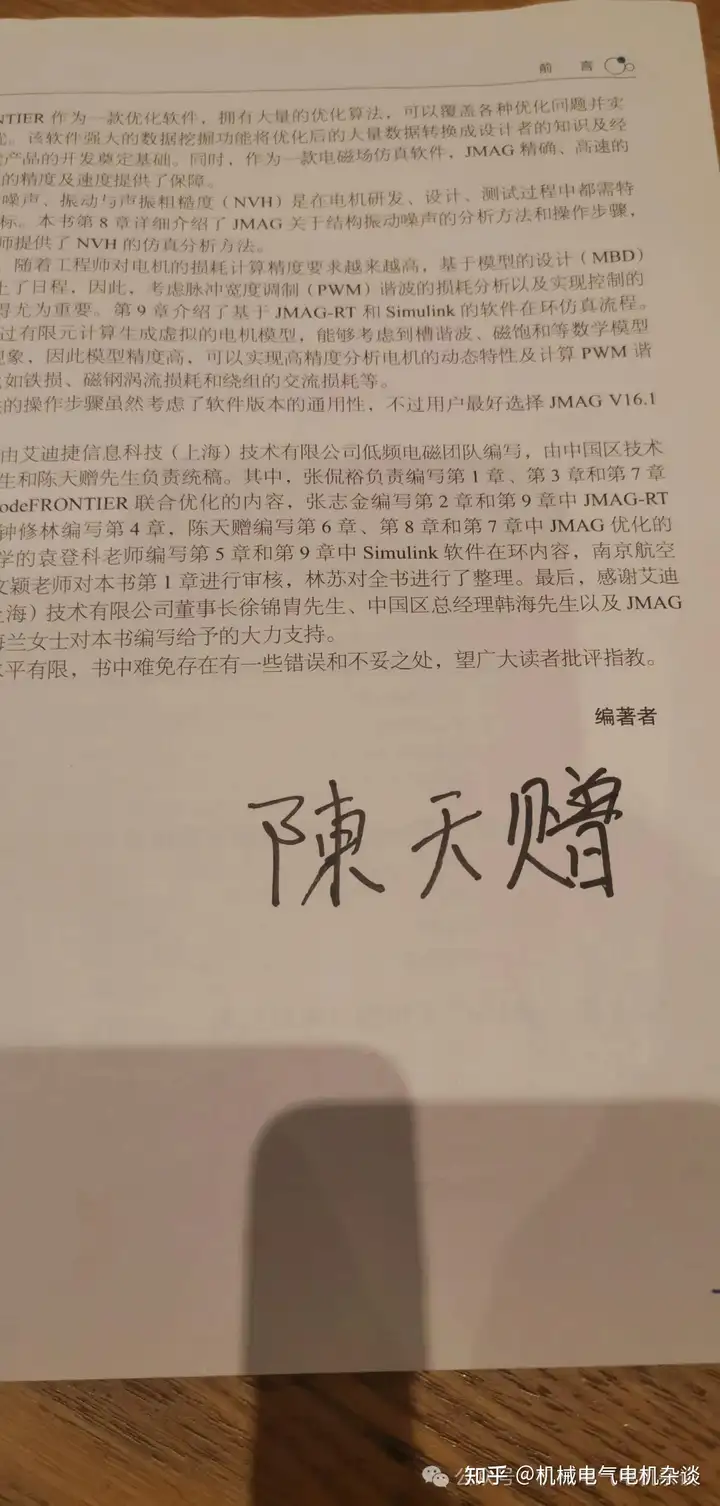 前 言
NTIER 作为一款优化软件，拥有大量的优化算法，可以覆盖各种优化问题并实
。该软件强大的数据挖掘功能将优化后的大量数据转换成设计者的知识及经
产品的开发奠定基础。同时，作为一款电磁场仿真软件，JMAG 精确、高速的
的精度及速度提供了保障。
噪声、振动与声振粗糙度（NVH）是在电机研发、设计、测试过程中都需特
标。本书第 8 章详细介绍了 JMAG 关于结构振动噪声的分析方法和操作步骤，
师提供了 NVH 的仿真分析方法。
随着工程师对电机的损耗计算精度要求越来越高，基于模型的设计（MBD）
上了日程，因此，考虑脉冲宽度调制（PWM）谐波的损耗分析以及实现控制的
得尤为重要。第 9 章介绍了基于 JMAG-RT 和 Simulink 的软件在环仿真流程。
过有限元计算生成虚拟的电机模型，能够考虑到槽谐波、磁饱和等数学模型
现象，因此模型精度高，可以实现高精度分析电机的动态特性及计算 PWM 谐
如铁损、磁钢涡流损耗和绕组的交流损耗等。
的操作步骤虽然考虑了软件版本的通用性，不过用户最好选择 JMAG V16.1
由艾迪捷信息科技（上海）技术有限公司低频电磁团队编写，由中国区技术
生和陈天赠先生负责统稿。其中，张侃裕负责编写第 1 章、第 3 章和第 7 章
odeFRONTIER 联合优化的内容，张志金编写第 2 章和第 9 章中 JMAG-RT
钟修林编写第 4 章，陈天赠编写第 6 章、第 8 章和第 7 章中 JMAG 优化的
学的袁登科老师编写第 5 章和第 9 章中 Simulink 软件在环内容，南京航空
文颖老师对本书第 1 章进行审核，林苏对全书进行了整理。最后，感谢艾迪
上海）技术有限公司董事长徐锦胄先生、中国区总经理韩海先生以及 JMAG
海兰女士对本书编写给予的大力支持。
水平有限，书中难免存在有一些错误和不妥之处，望广大读者批评指教。
编著者
陳天赠
知乎 @机械电气电机杂谈